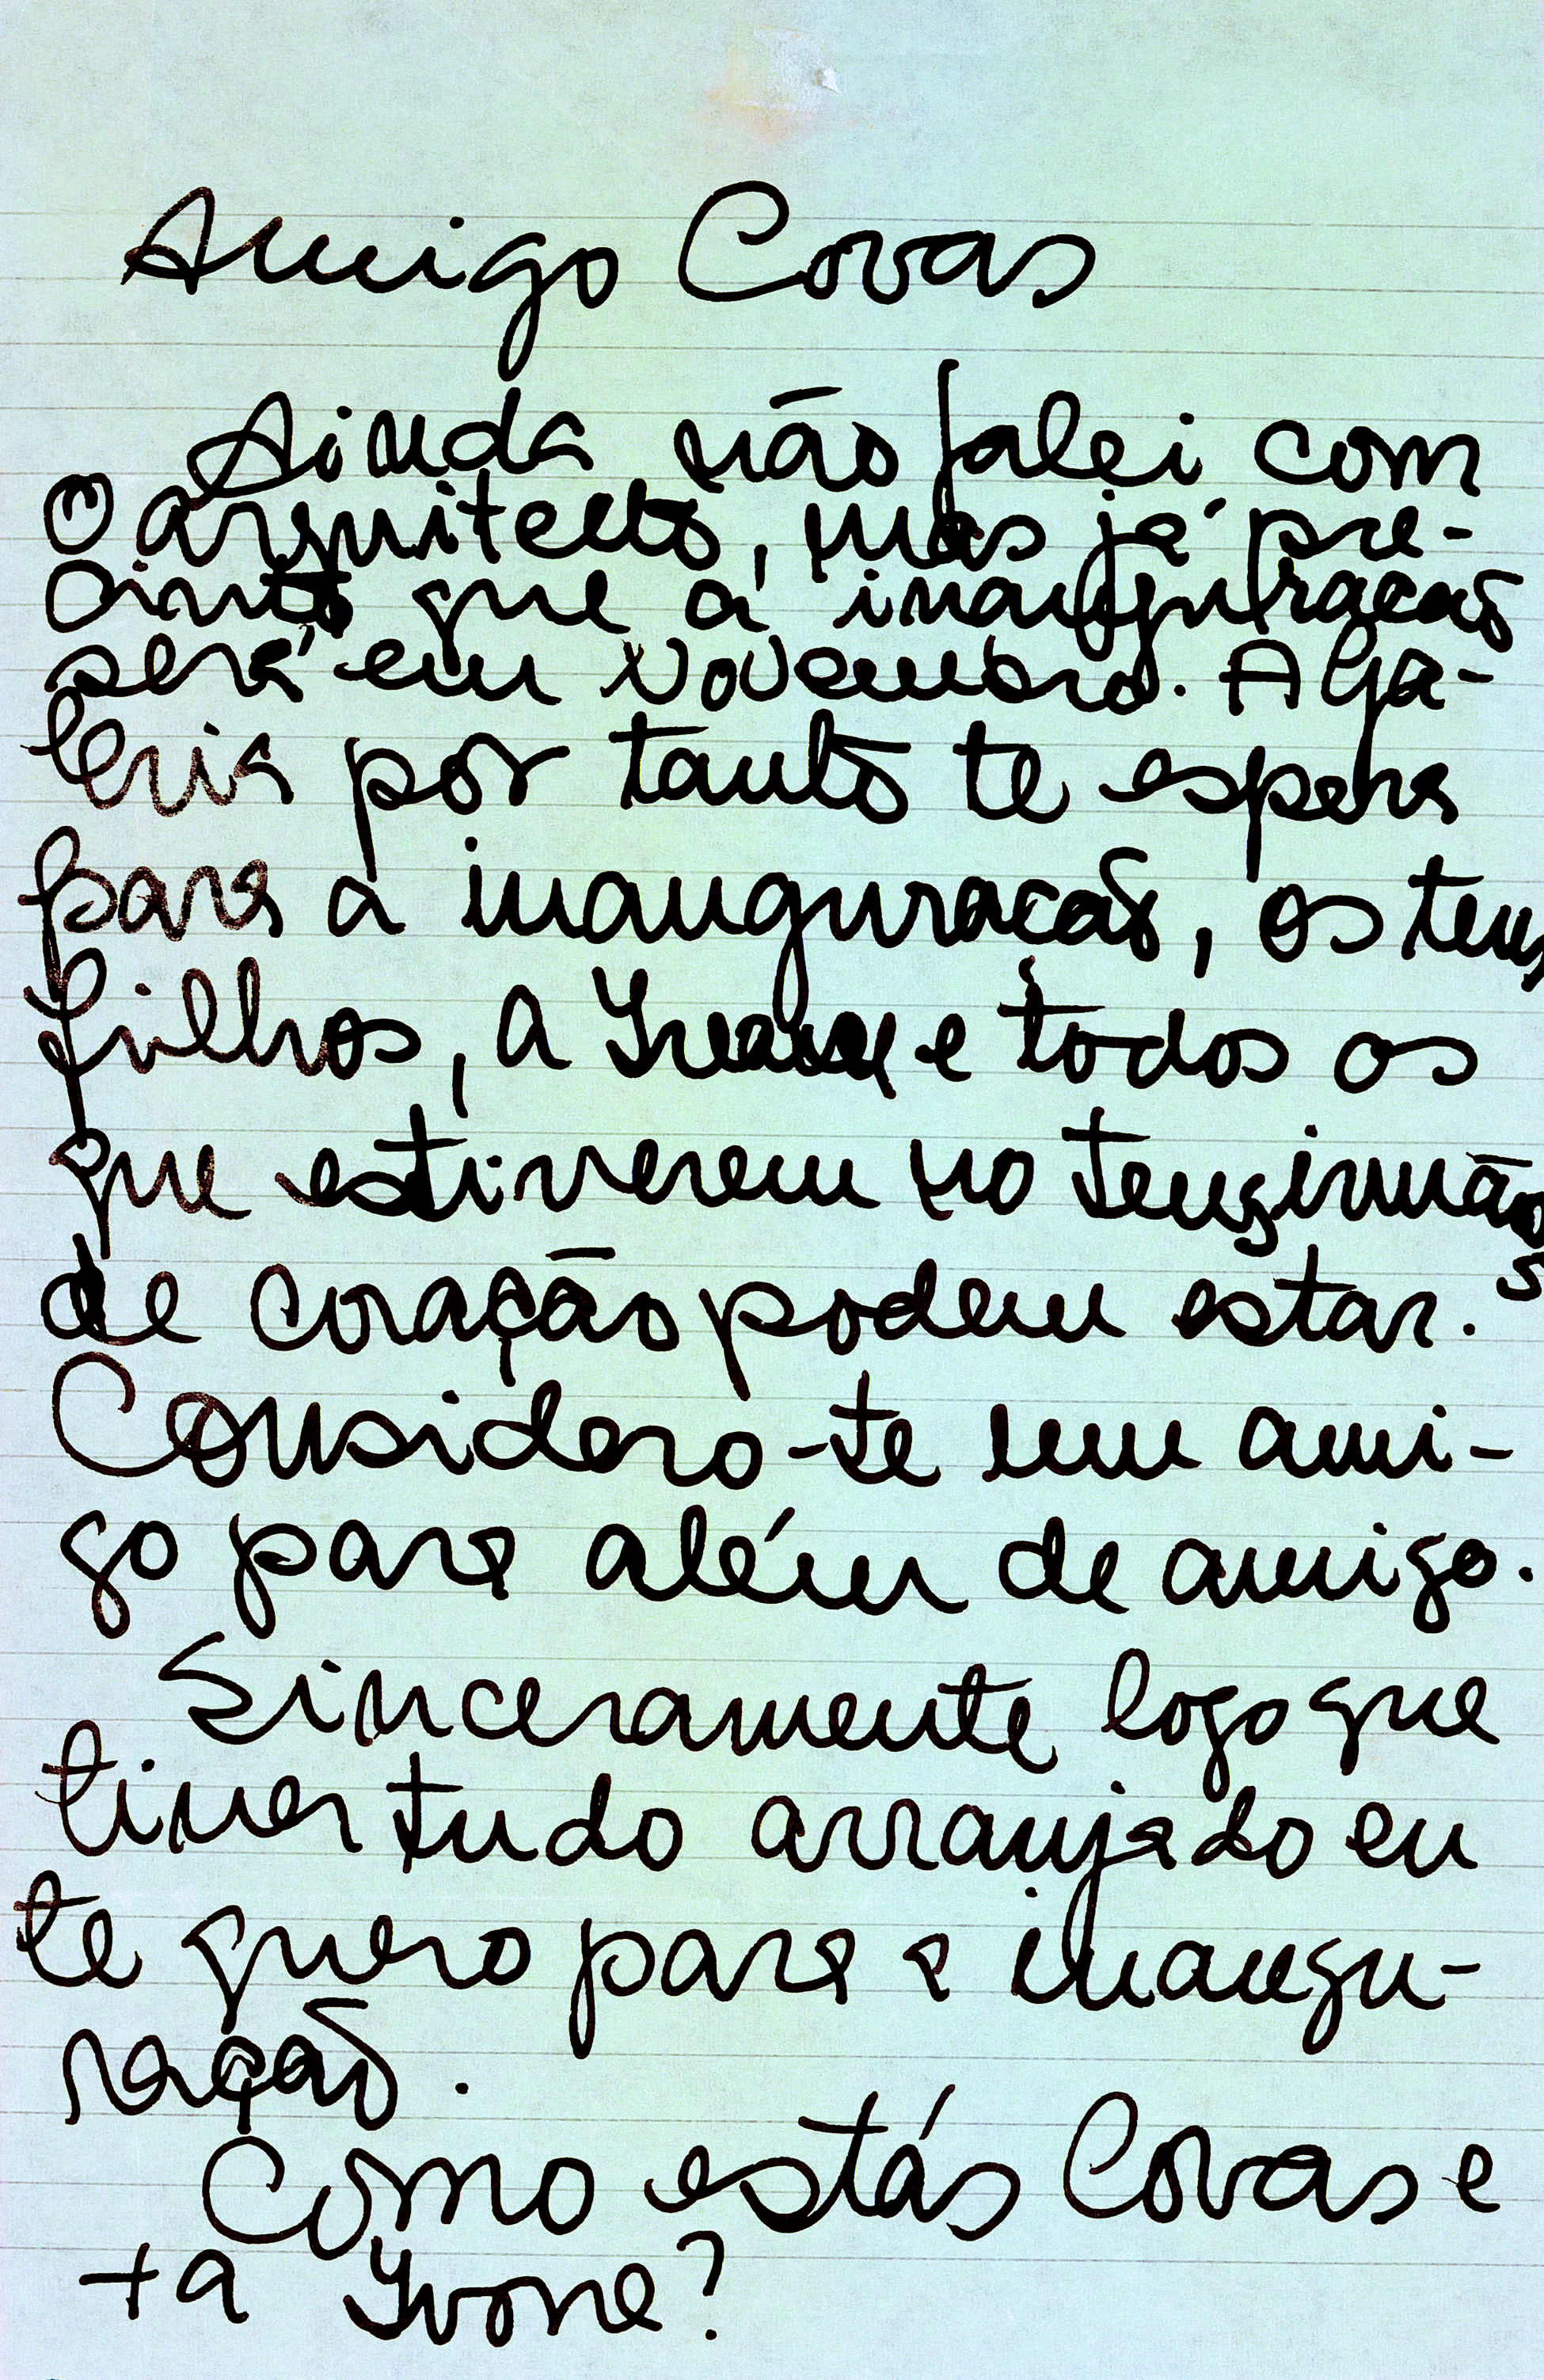 Amigo Covas
Ainda não falei com
o arquitecto, mas já pre-
cinto que a inauguracão
será em Novembro. A Ga-
leria por tanto te espera
para a inauguracão, os teus
filhos, a e todos os
que estiverem no teus irmãos
de coração podem estar.
Considero-te um ami-
go para além de amigo.
Sinceramente logo que
tiver tudo arranjado eu
te quero para a inaugu-
ração.
Como estás Covas e
+ a Yvone?